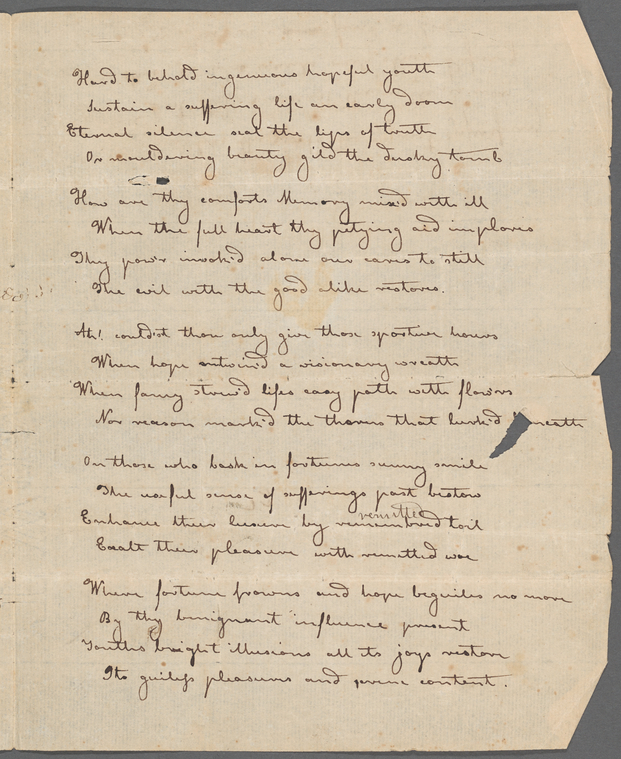 Hard to behold ingenuous hopeful youth
Sustain a suffering life an early doom
Eternal silence seal the lips of truth
Or mouldering beauty gild the dusky tomb
How are thy comforts Memory mix'd with ill
When the full heart thy pitying aid implores
Thy pow'r invok'd alone our cares to still
The evil with the good alike restores.
Ah! could'st thou only give those sportive hours
When hope entwin'd a visionary wreath
When fancy strew'd lifes easy path with flow'rs
Nor reason mark'd the thorns that lurk'd beneath
On those who bask in fortunes sunny smile
The useful sense of sufferings past bestow
remitted
Enhance their leisure by remembered toil
Exalt their pleasure with remitted woe
Where fortune frowns and hope beguiles no more
By thy benignant influence present
Youths bright illusions all its joys restore
Its guiless pleasures and serene content.